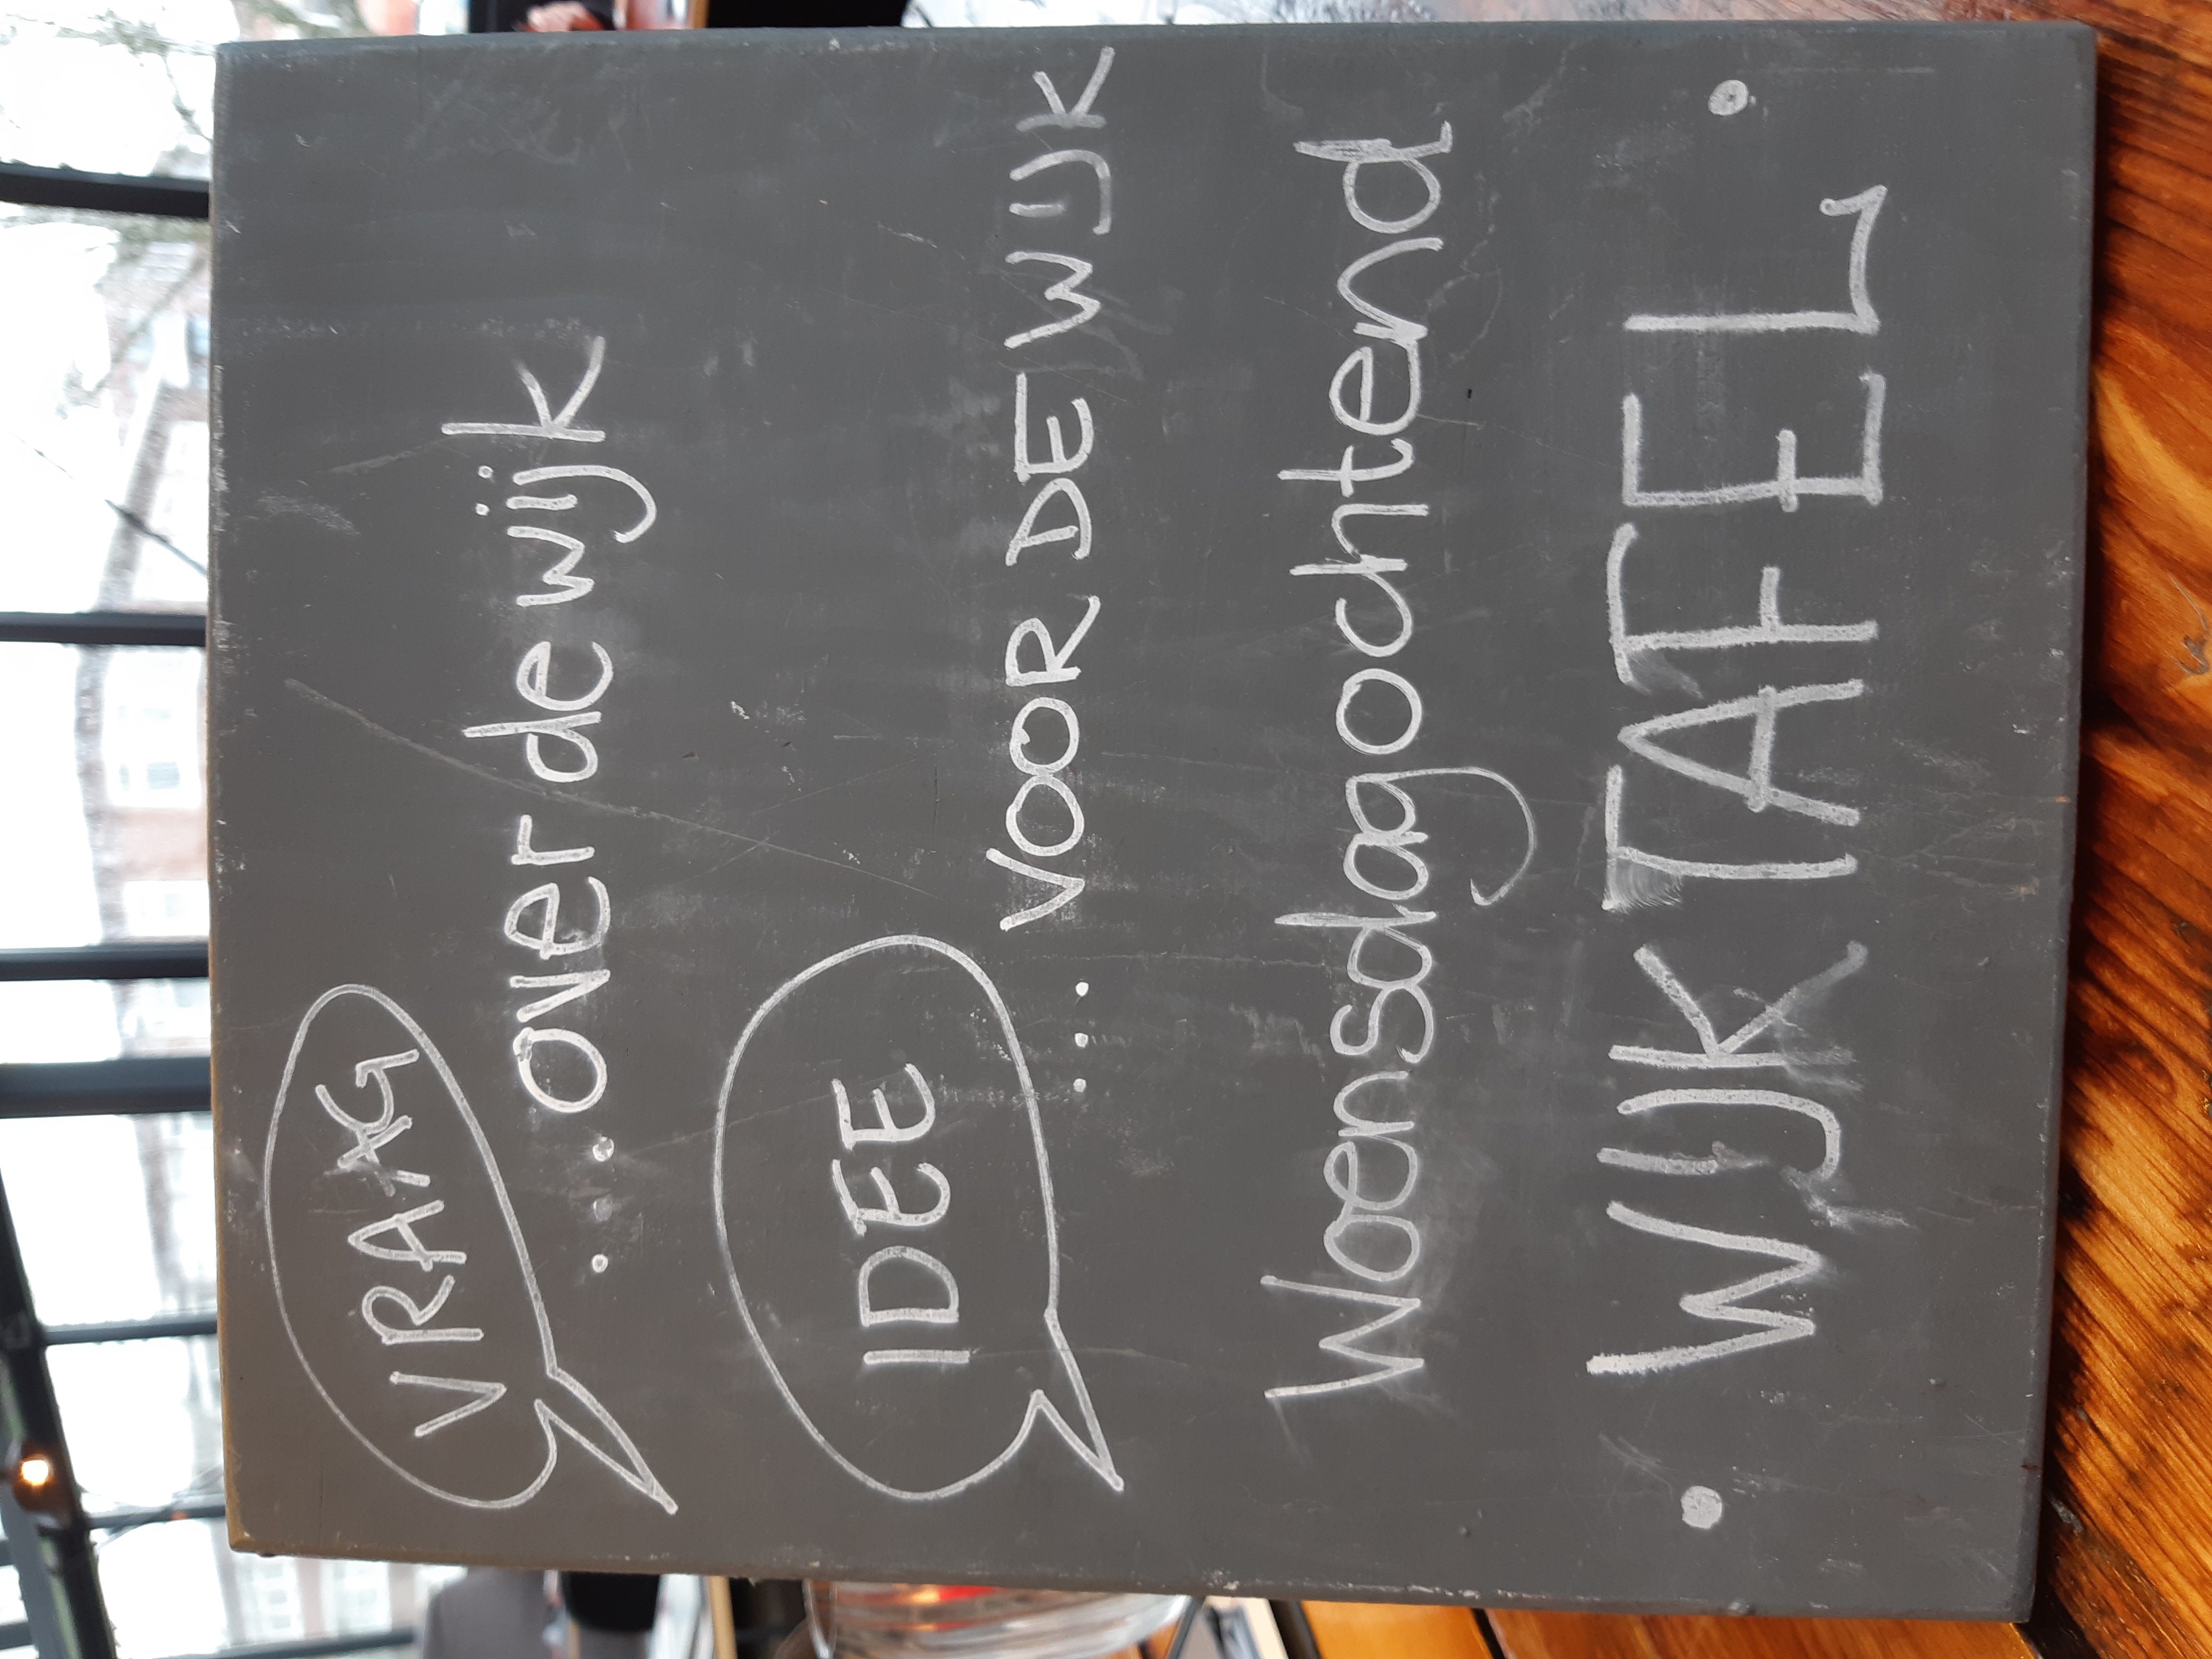 VRAAG
...over de wijk
IDEE
... VOOR DE WIJK
Woensdagochtend
• WIJK TAFEL •